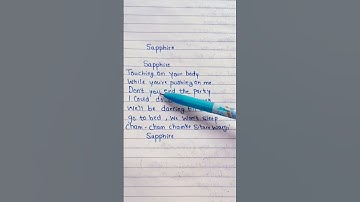 Sapphire
Sapphire
Touching on your body
While you're pushing on me
Don't you end the party
I Could do
We'll be dancing till
go to bed, we won't sleep
Cham-cham chamke sitare warg
Sapphire